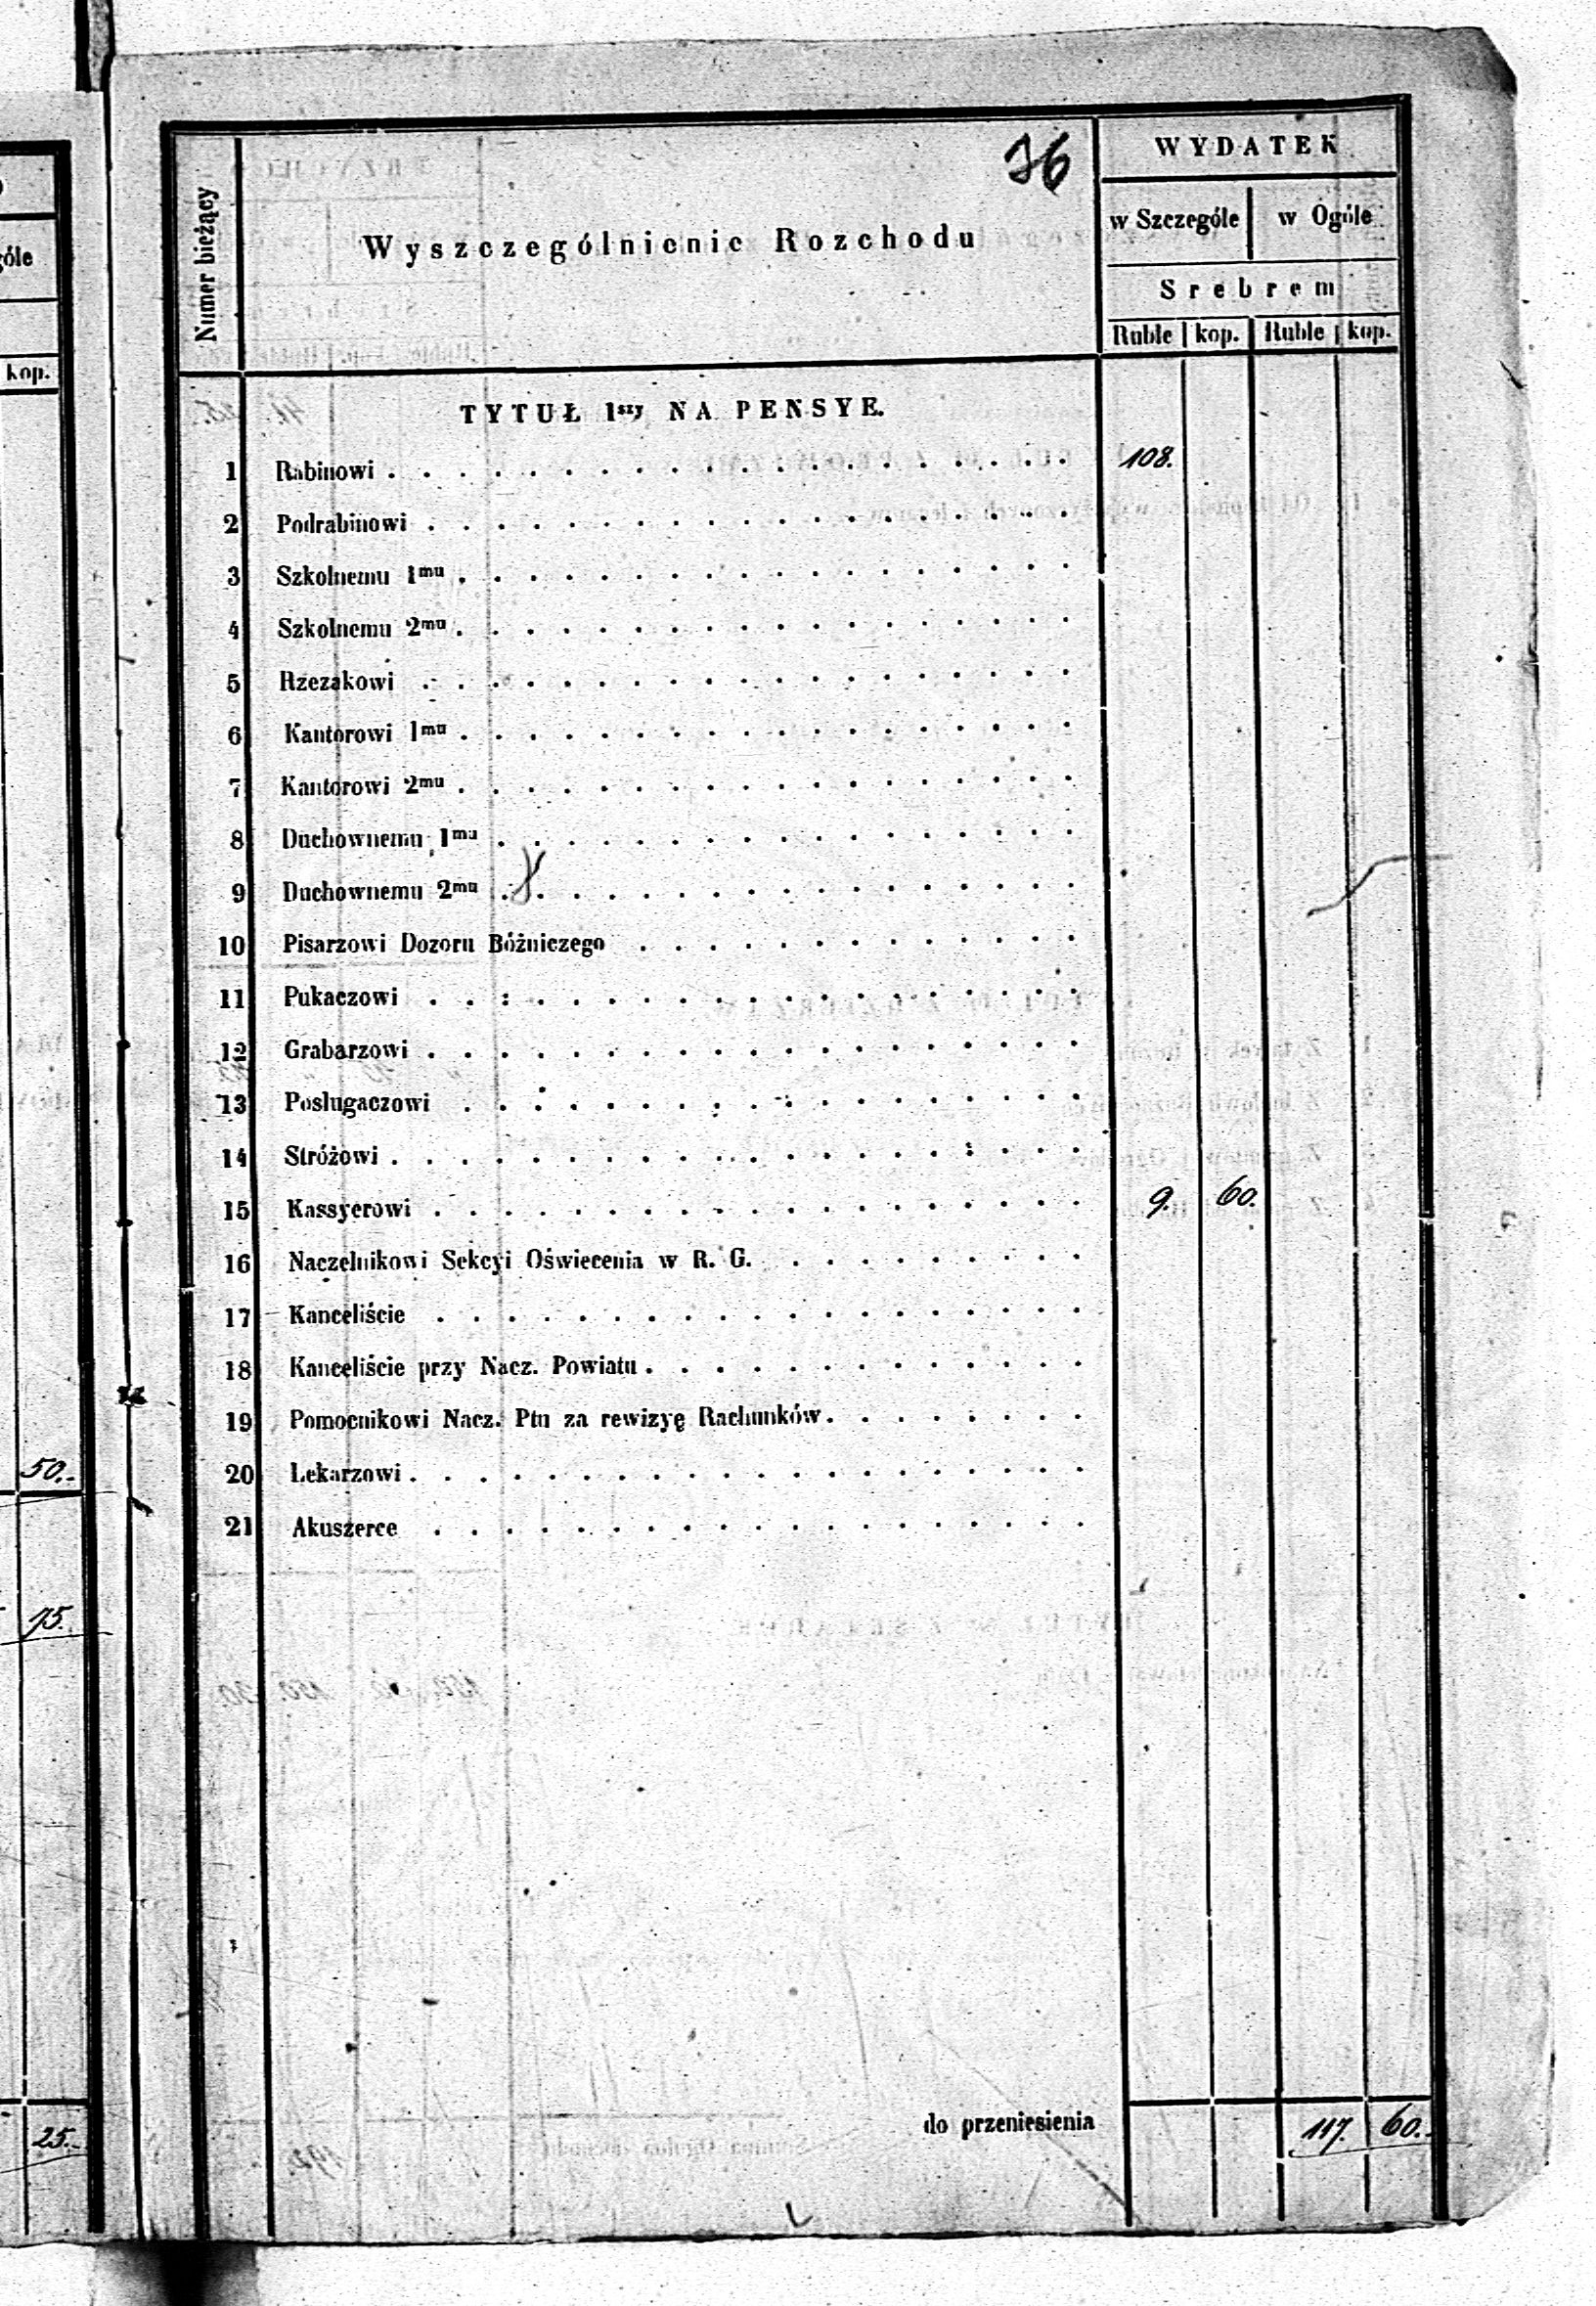 óle
kop.
50.
75.
25.
36
WYDATEK
Numer bieżący
Wyszczególnienie Rozchodu
w Szczególe w Ogóle
Srebrem
Ruble kop. Ruble kop.
TYTUŁ 1szy NA PENSYE.
1 Rabinowi . . . . . . . . . . . . . . . . . . . . 108.
2 Podrabinowi . . . . . . . . . . . . . . . . . . .
3 Szkolnemu 1mu . . . . . . . . . . . . . . . . . .
4 Szkolnemu 2mu . . . . . . . . . . . . . . . . . .
5 Rzezakowi . . . . . . . . . . . . . . . . . . .
6 Kantorowi 1mu . . . . . . . . . . . . . . . . . .
7 Kantorowi 2mu . . . . . . . . . . . . . . . . . .
8 Duchownemu 1mu . . . . . . . . . . . . . . . . .
9 Duchownemu 2mu . . . . . . . . . . . . . . . . .
10 Pisarzowi Dozoru Bóźniczego . . . . . . . . . . . . .
11 Pukaczowi . . . . . . . . . . . . . . . . . . .
12 Grabarzowi . . . . . . . . . . . . . . . . . . .
13 Poslugaczowi . . . . . . . . . . . . . . . . . .
14 Stróżowi . . . . . . . . . . . . . . . . . . . .
15 Kassyerowi . . . . . . . . . . . . . . . . . . . 9. 60.
16 Naczelnikowi Sekcyi Oświecenia w R. G. . . . . . . . . .
17 Kanceliście . . . . . . . . . . . . . . . . . . .
18 Kanceliście przy Nacz. Powiatu . . . . . . . . . . . . .
19 Pomocnikowi Nacz. Ptu za rewizyę Rachunków . . . . . . . .
20 Lekarzowi . . . . . . . . . . . . . . . . . . . .
21 Akuszerce . . . . . . . . . . . . . . . . . . .
do przeniesienia 117. 60.